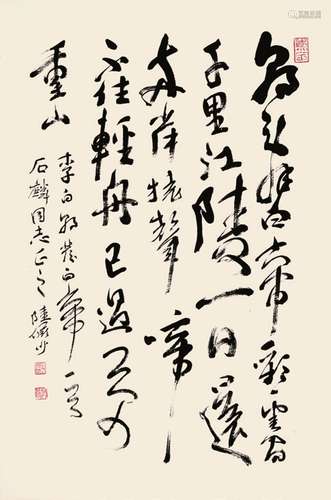 朝辞白帝彩雲間
千里江陵一日還
两岸猿聲啼
不住輕舟已過万
重山
李白朝發白帝一首
石麟同志正之 陸儼少